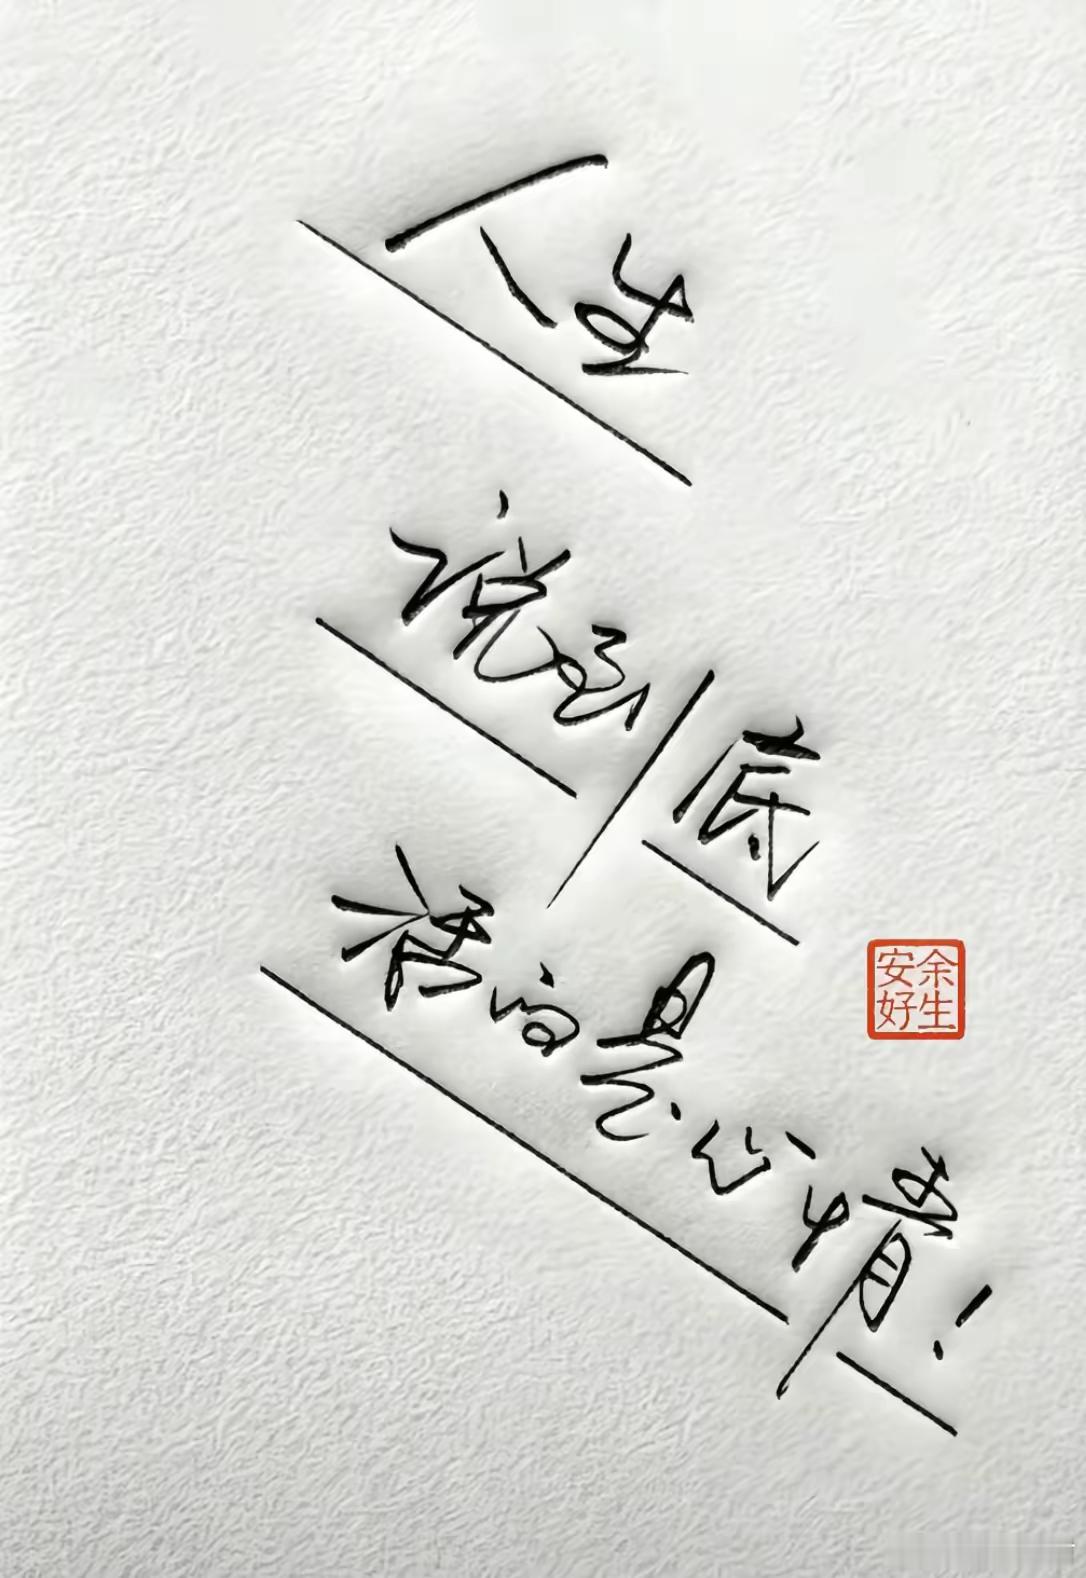 人生
说到底
活的是心情!
余生
安好